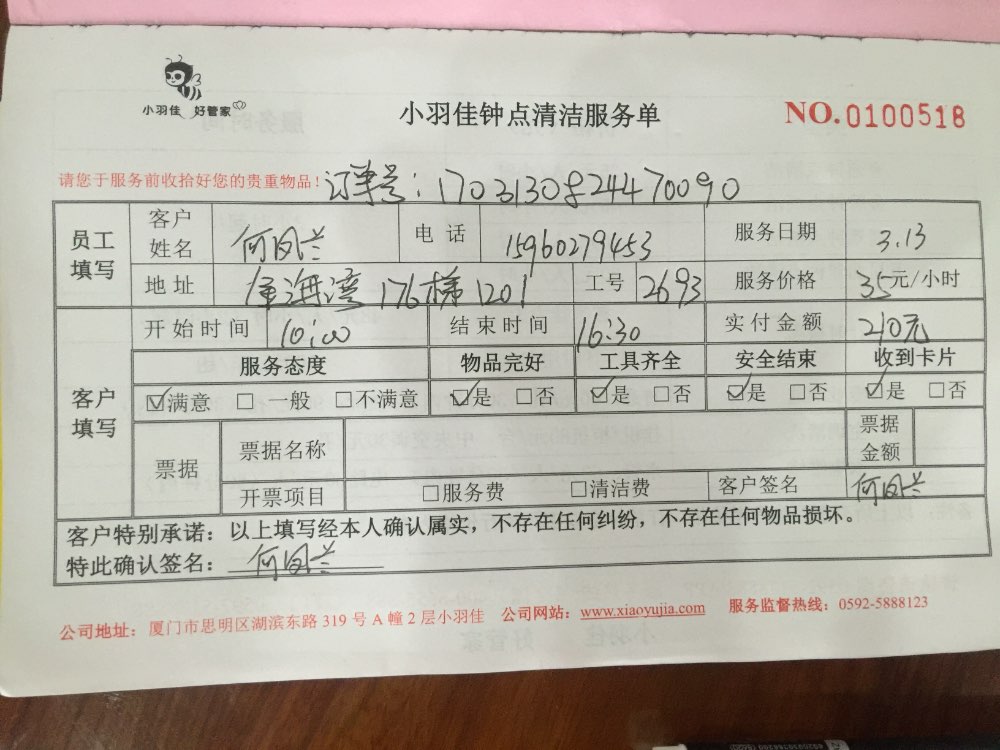 小羽佳 好管家
小羽佳钟点清洁服务单
NO.0100518
请您于服务前收拾好您的贵重物品！订单号：1703130824470090
员工填写 客户姓名 何凤兰 电话 15960279453 服务日期 3.13
地址 海湾176梯1201 工号 2693 服务价格 35元/小时
客户填写 开始时间 10:00 结束时间 16:30 实付金额 210元
服务态度 物品完好 工具齐全 安全结束 收到卡片
☑满意 □一般 □不满意 ☑是 □否 ☑是 □否 ☑是 □否 ☑是 □否
票据 票据名称 票据金额
开票项目 □服务费 □清洁费 客户签名 何凤兰
客户特别承诺：以上填写经本人确认属实，不存在任何纠纷，不存在任何物品损坏。
特此确认签名：何凤兰
公司地址：厦门市思明区湖滨东路 319 号 A 幢 2 层小羽佳 公司网站：www.xiaoyujia.com 服务监督热线：0592-5888123